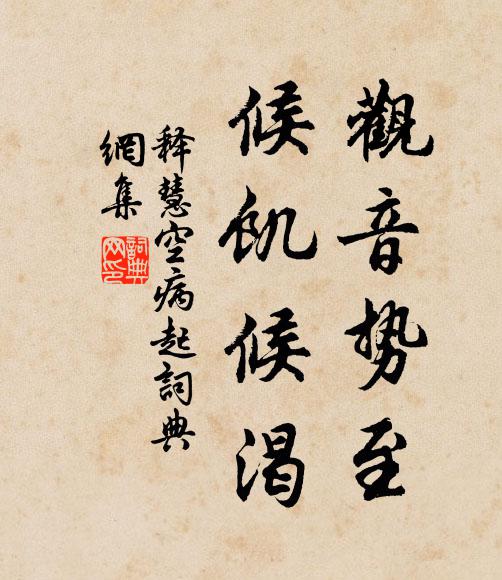 觀音势至
候飢候渴
释慧空病起詞典
網集
詞典
网印